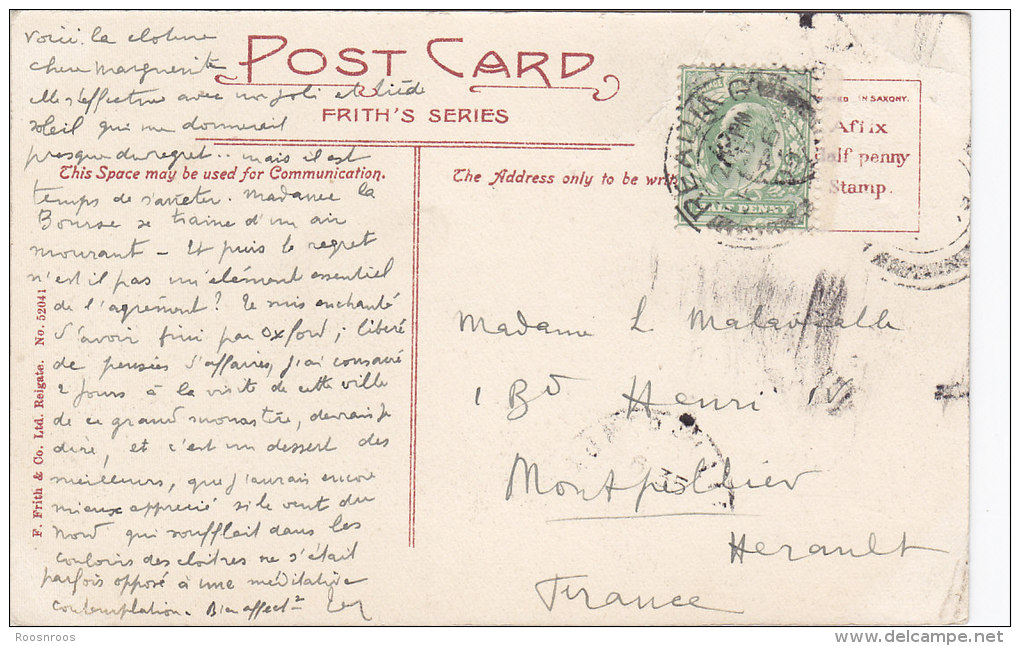 Voici la cloture
chere Marguerite
elle s'effectue avec un joli et tiède
soleil qui me donnerait
presque du regret.. mais il est
temps de s'arreter. Madame la
Bourse se traine d'un air
mourant - Et puis le regret
n'est il pas un élément essentiel
de l'agrément? Je suis enchanté
d'avoir fini par Oxford; libéré
de pensées d'affaires, j'ai consacré
2 jours à la visite de cette ville
de ce grand monastère, devrais je
dire, et c'est un dessert des
meilleurs, que j'aurais encore
mieux apprécié si le vent du
Nord qui soufflait dans les
couloirs des cloitres ne s'était
parfois opposé à une méditative
contemplation. Bien affect.
POST CARD
FRITH'S SERIES
This Space may be used for Communication.
The Address only to be
IN SAXONY.
Affix
Half penny
Stamp.
READING
PENNY
Madame L Malavialle
1 Bd Henri IV
Montpellier
Herault
France
F. Frith & Co. Ltd. Reigate. No. 52041
Roosnroos
delcampe.net